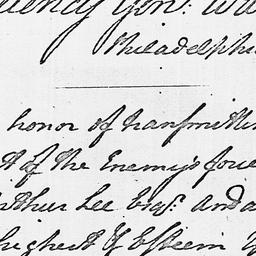 uency Gen.
Philadelphi
honor of transmittin
t of the Enemy's forc
rthur Lee Esqr. and a
highest of Esteem